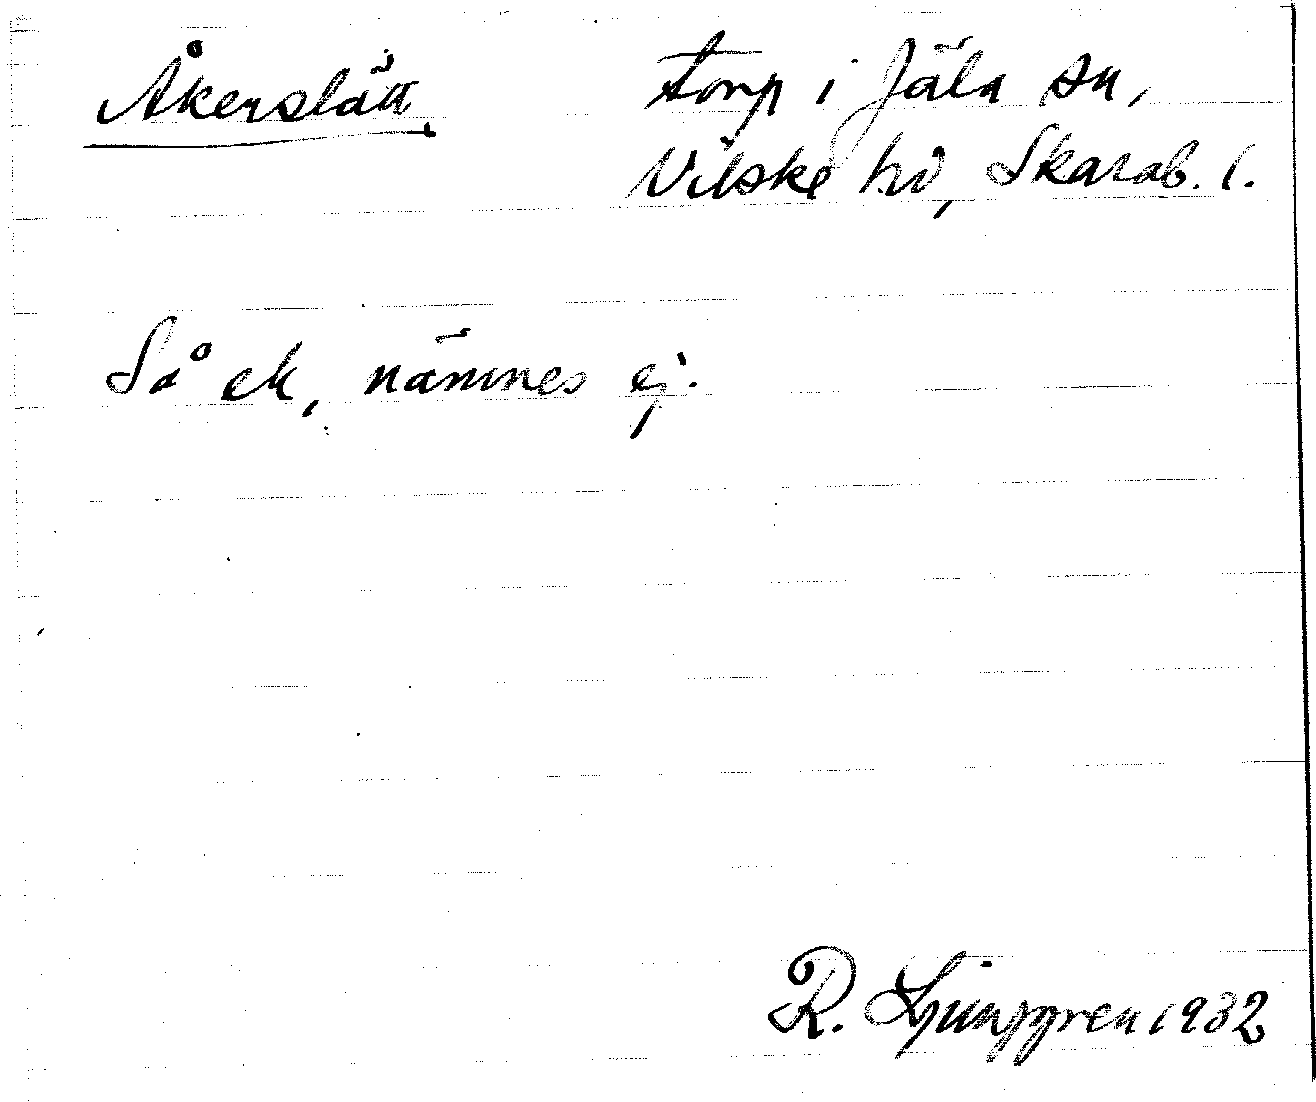 Åkerslätt torp i Jäla sn,
Vilske hd, Skarab. l.
Så ek, nämnes ej.
R. Ljunggren 1932